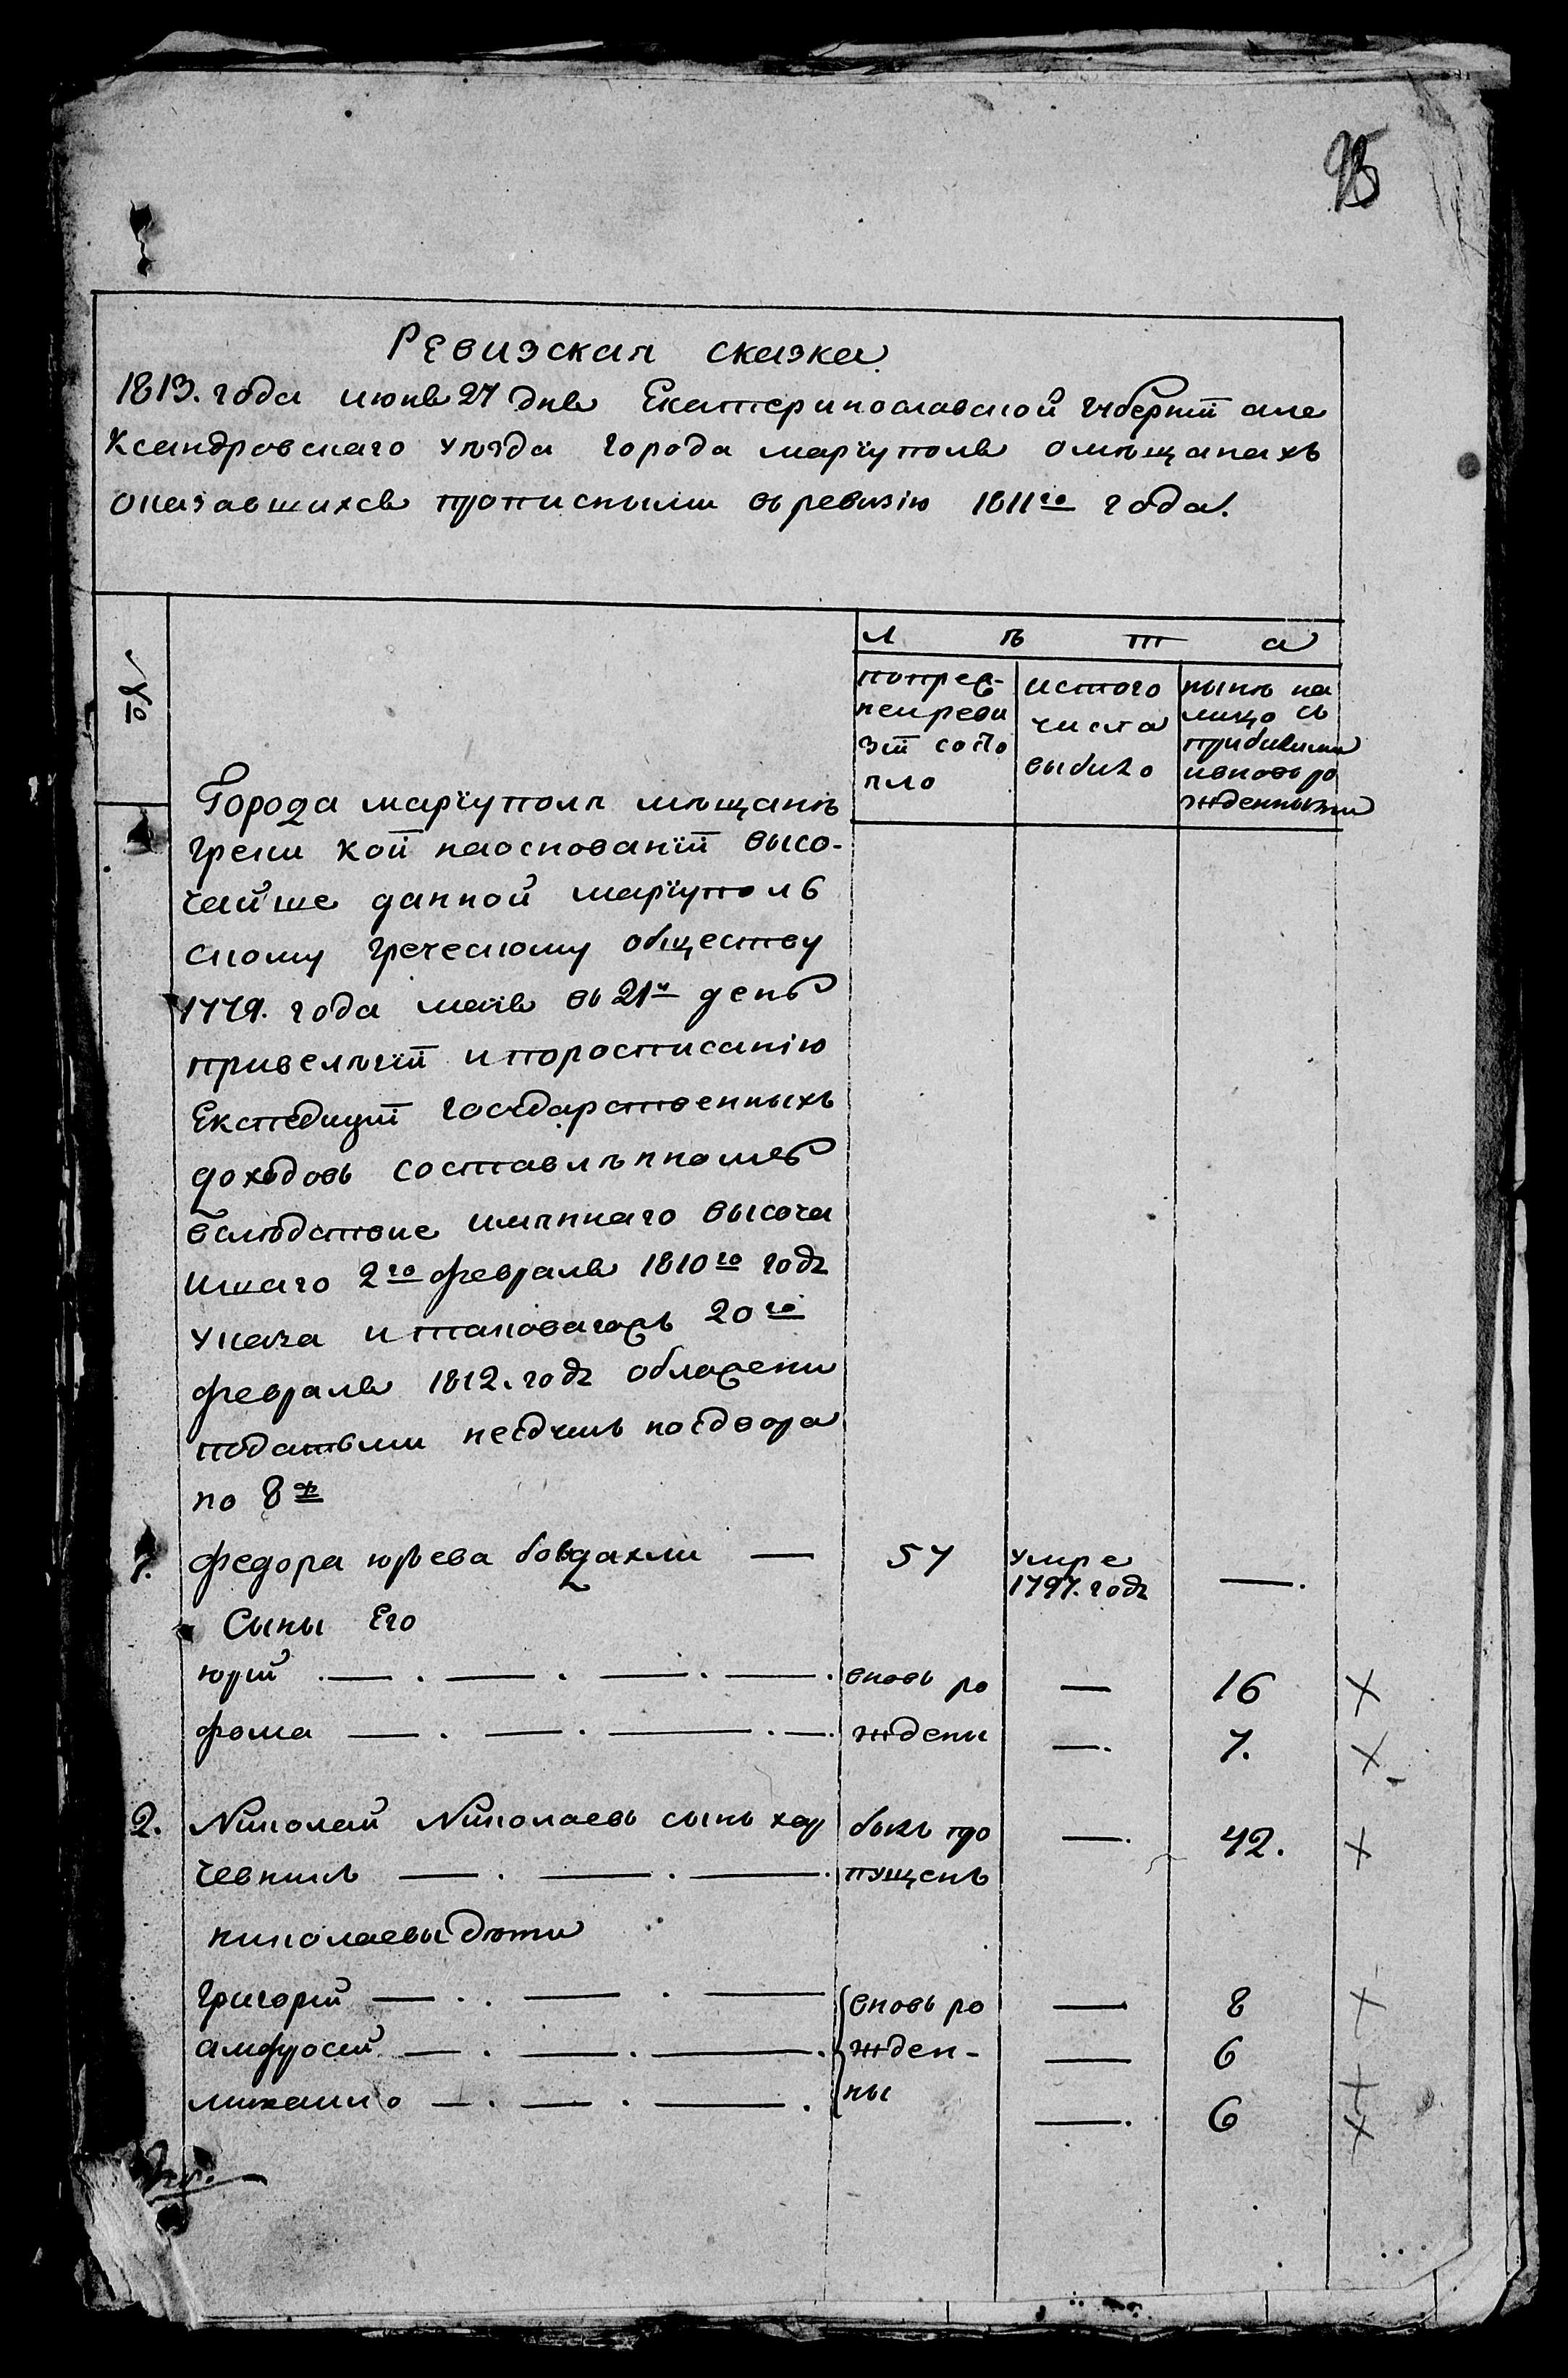 95
Ревизская сказка.
1813. года июня 27 дня Екатеринославской губернїи але
ксандровскаго уѣзда города марїуполя о мѣщанахъ
оказавшихся прописными въ ревизію 1811го года.
л ѣ т а
попред-
ней реви
зїи состо
яло
и стого
числа
выбыло
нынѣ на
лицо съ
прибилими
и вновь ро
жденными
Города марїуполя мѣщанѣ
греки кой на основанїи высо-
чайше данной марїуполь
скому греческому обществу
1779. года маїя въ 21й день
привелѣгїи и поросписанію
Експедицїи государственныхъ
доходовъ составлѣнномъ
вслѣдствие имяннаго высоча
ишаго 2го февраля 1810го годꙋ
указа и таковагожъ 20го
февраля 1812. годꙋ обложени
податьми несдушъ но сдвора
1. федора юрьева — 57 умре
1797. годꙋ —.
Сыны Его
юрий .— . — . — . — . вновь ро — 16 ×
фома — . — . — . — . ждени —. 7. ×
2. Николай Николаевъ сынъ хар былъ про —. 42. ×
чевникъ — . — . — . пущенъ
николаевы дѣти
Григорий — . . — . — вновь ро — 8 ×
амфросий — . — . — . жден- — 6 ×
михаило — . — . — . ны —. 6 ×